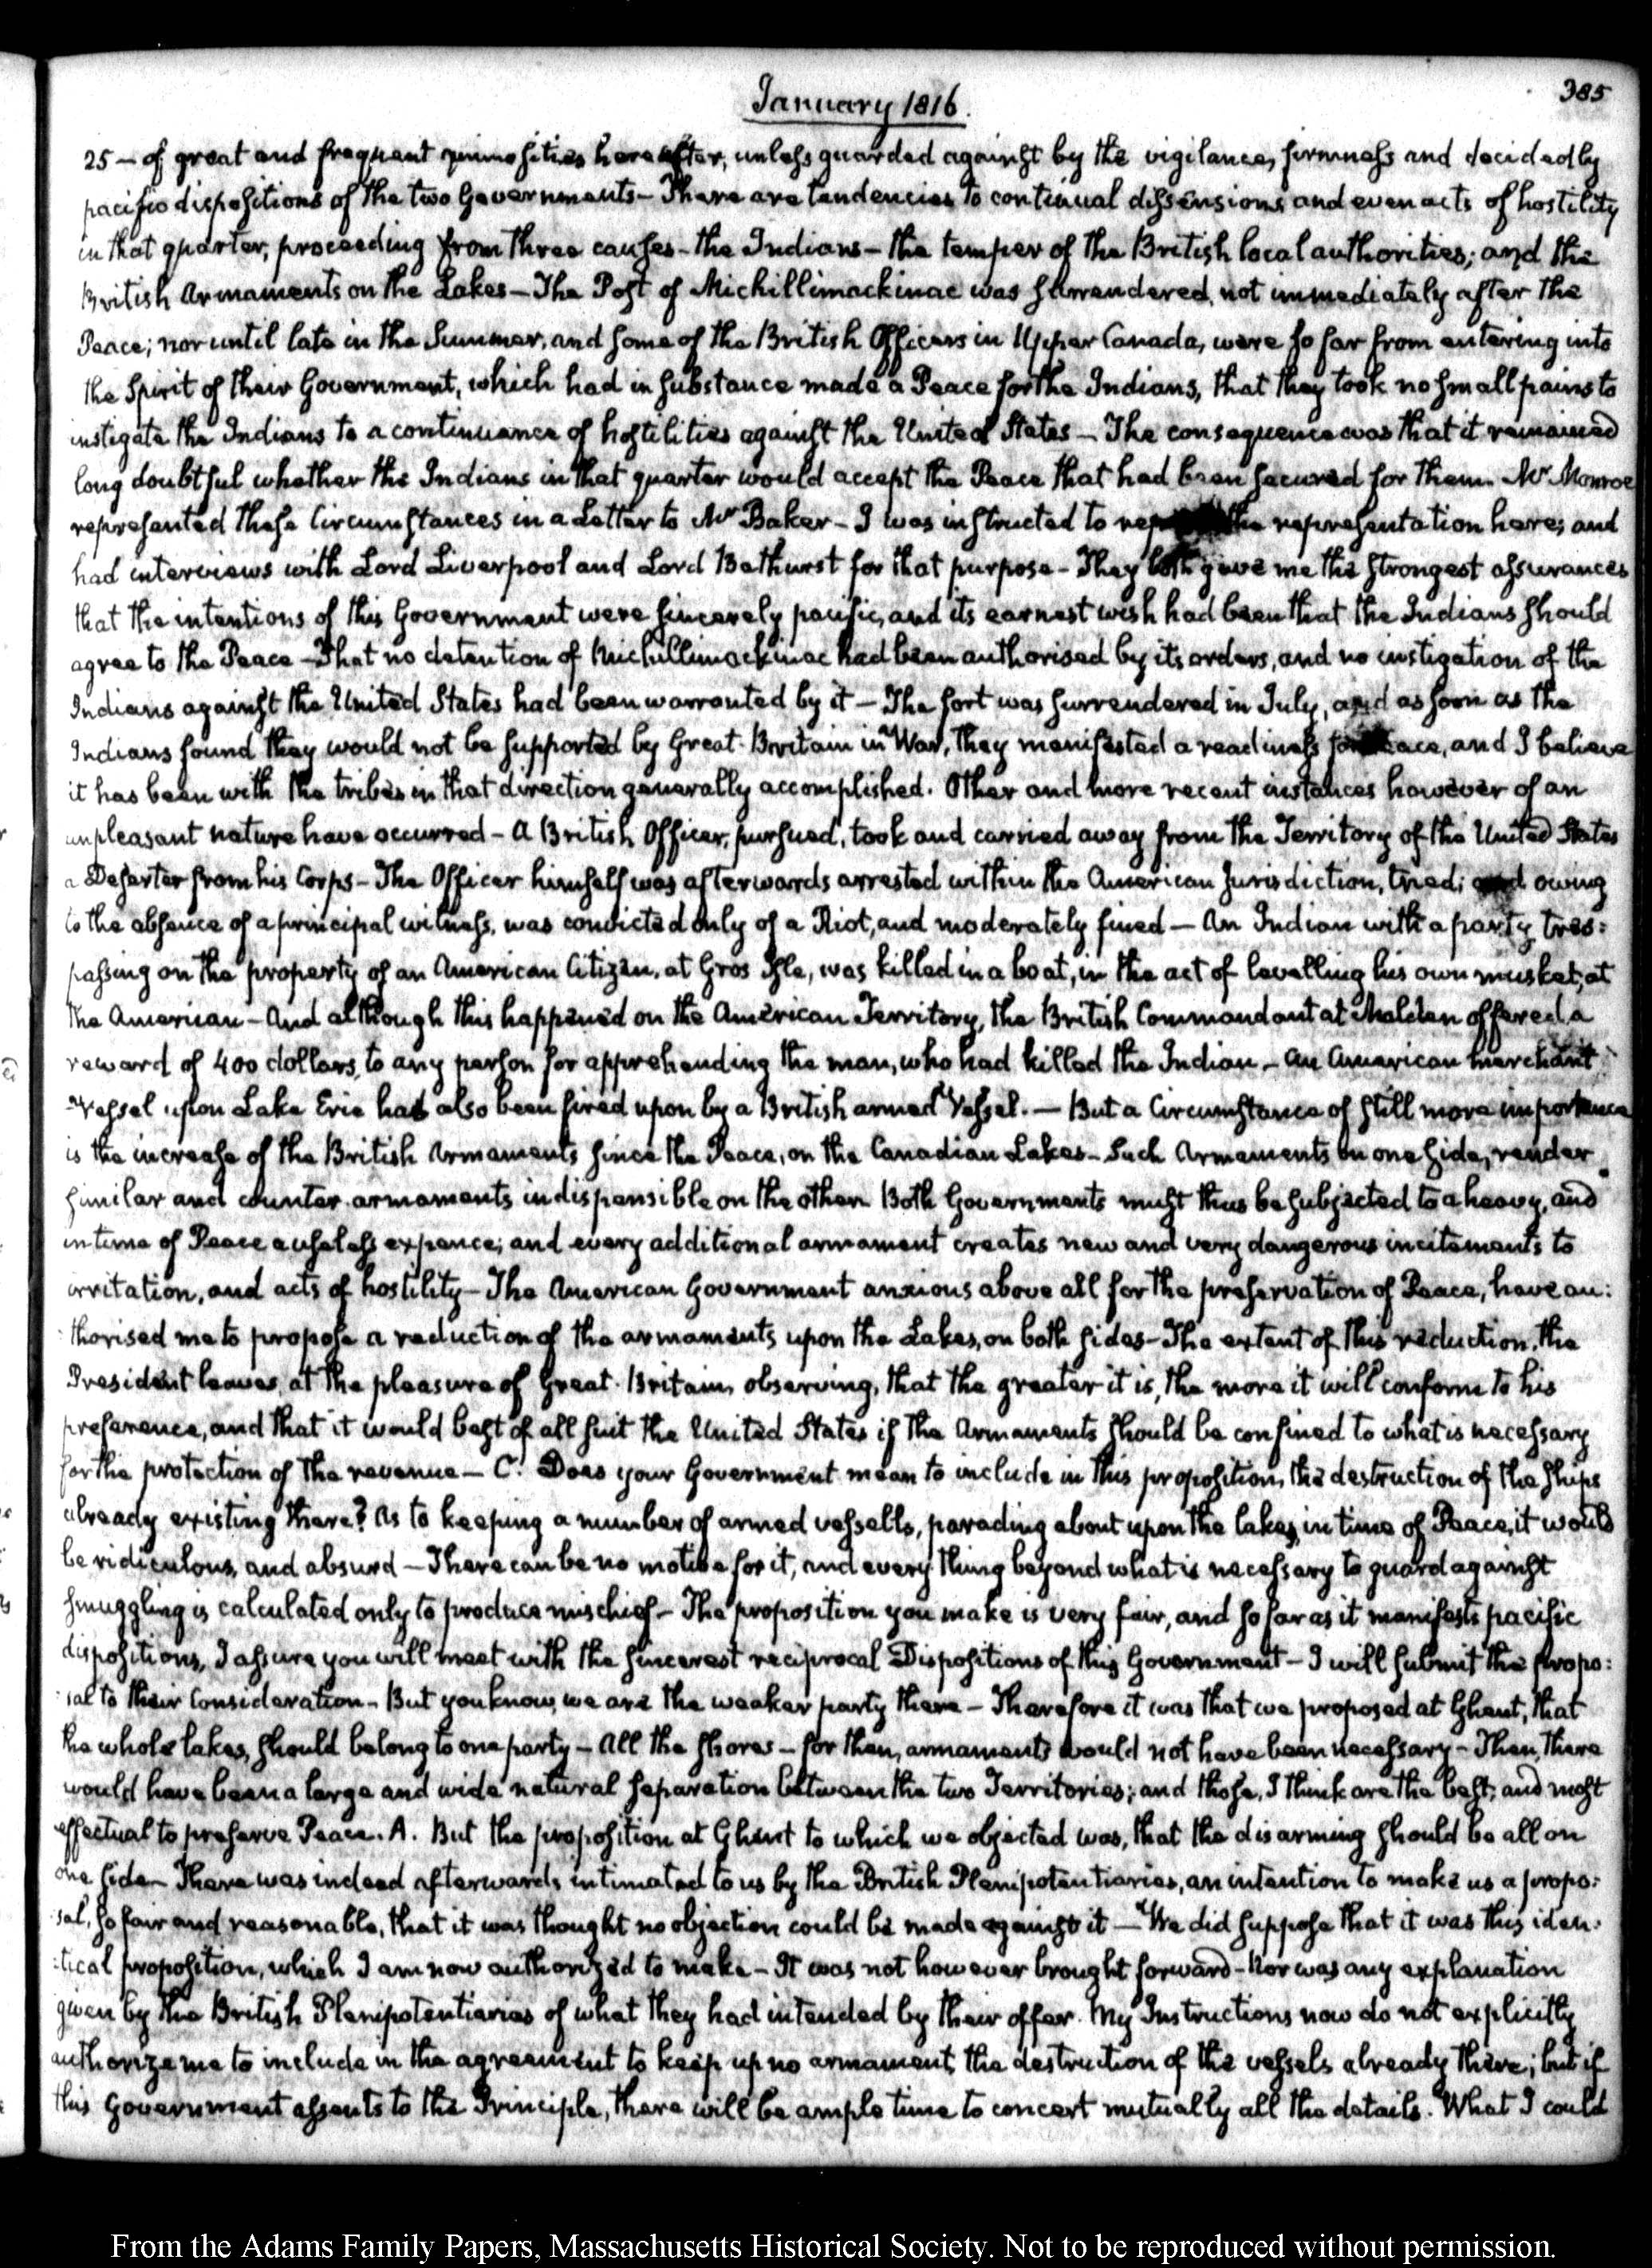 January 1816.
385
25 – of great and frequent animosities hereafter, unless guarded against by the vigilance, firmness and decidedly
pacific dispositions of the two Governments – There are tendencies to continual dissensions and even acts of hostility
in that quarter, proceeding from three causes – the Indians – the temper of the British local authorities; and the
British Armaments on the Lakes – The Post of Michillimackinac was surrendered, not immediately after the
Peace; nor until late in the Summer, and some of the British Officers in Upper Canada, were so far from entering into
the Spirit of their Government, which had in substance made a Peace for the Indians, that they took no small pains to
instigate the Indians to a continuance of hostilities against the United States – The consequence was that it remained
long doubtful whether the Indians in that quarter would accept the Peace that had been secured for them. Mr Monroe
represented these Circumstances in a Letter to Mr Baker – I was instructed to the representation here; and
had interviews with Lord Liverpool and Lord Bathurst for that purpose – They both gave me the strongest assurances
that the intentions of this Government were sincerely pacific, and its earnest wish had been that the Indians should
agree to the Peace – That no detention of Michillimackinac had been authorised by its orders, and no instigation of the
Indians against the United States had been warranted by it – The fort was surrendered in July, and as soon as the
Indians found they would not be supported by Great-Britain in War, they manifested a readiness for Peace, and I believe
it has been with the tribes in that direction generally accomplished. Other and more recent instances however of an
unpleasant nature have occurred – A British Officer, pursued, took and carried away from the Territory of the United States
a Deserter from his Corps – The Officer himself was afterwards arrested within the American Jurisdiction, tried; and owing
to the absence of a principal witness, was convicted only of a Riot, and moderately fined – An Indian with a party tres:
passing on the property of an American Citizen, at Gros Isle, was killed in a boat, in the act of levelling his own musket, at
the American – And although this happened on the American Territory, the British Commandant at Malden offered a
reward of 400 dollars, to any person for apprehending the man, who had killed the Indian. – An American merchant
Vessel upon Lake Erie had also been fired upon by a British armed Vessel. – But a Circumstance of still more importance
is the increase of the British Armaments since the Peace, on the Canadian Lakes – Such Armaments on one side, render
similar and counter armaments indispensible on the other. Both Governments must thus be subjected to a heavy, and
in time of Peace a useless expence; and every additional armament creates new and very dangerous incitements to
irritation, and acts of hostility – The American Government anxious above all for the preservation of Peace, have au:
:thorised me to propose a reduction of the armaments upon the Lakes, on both sides – The extent of this reduction, the
President leaves, at the pleasure of Great-Britain, observing, that the greater it is, the more it will conform to his
preference, and that it would best of all suit the United States if the Armaments should be confined to what is necessary
for the protection of the revenue – C. Does your Government mean to include in this proposition, the destruction of the ships
already existing there? As to keeping a number of armed vessells, parading about upon the lakes, in time of Peace, it would
be ridiculous, and absurd – There can be no motive for it, and every thing beyond what is necessary to guard against
smuggling is calculated only to produce mischief – The proposition you make is very fair, and so far as it manifests pacific
dispositions, I assure you will meet with the sincerest reciprocal Dispositions of this Government – I will submit the propo:
:sal to their Consideration – But you know, we are the weaker party there – Therefore it was that we proposed at Ghent, that
the whole lakes, should belong to one party – All the shores – for then, armaments would not have been necessary – Then, there
would have been a large and wide natural separation between the two Territories; and those, I think are the best, and most
effectual to preserve Peace. A. But the proposition at Ghent to which we objected was, that the disarming should be all on
one side – There was indeed afterwards, intimated to us by the British Plenipotentiaries, an intention to make us a propo:
:sal, so fair and reasonable, that it was thought no objection could be made against it – We did suppose that it was this iden:
:tical proposition, which I am now authorized to make – It was not however brought forward – Nor was any explanation
given by the British Plenipotentiaries of what they had intended by their offer. My Instructions now do not explicitly
authorize me to include in the agreement to keep up no armament, the destruction of the vessels already there; but if
this Government assents to the Principle, there will be ample time to concert mutually all the details. What I could
From the Adams Family Papers, Massachusetts Historical Society. Not to be reproduced without permission.